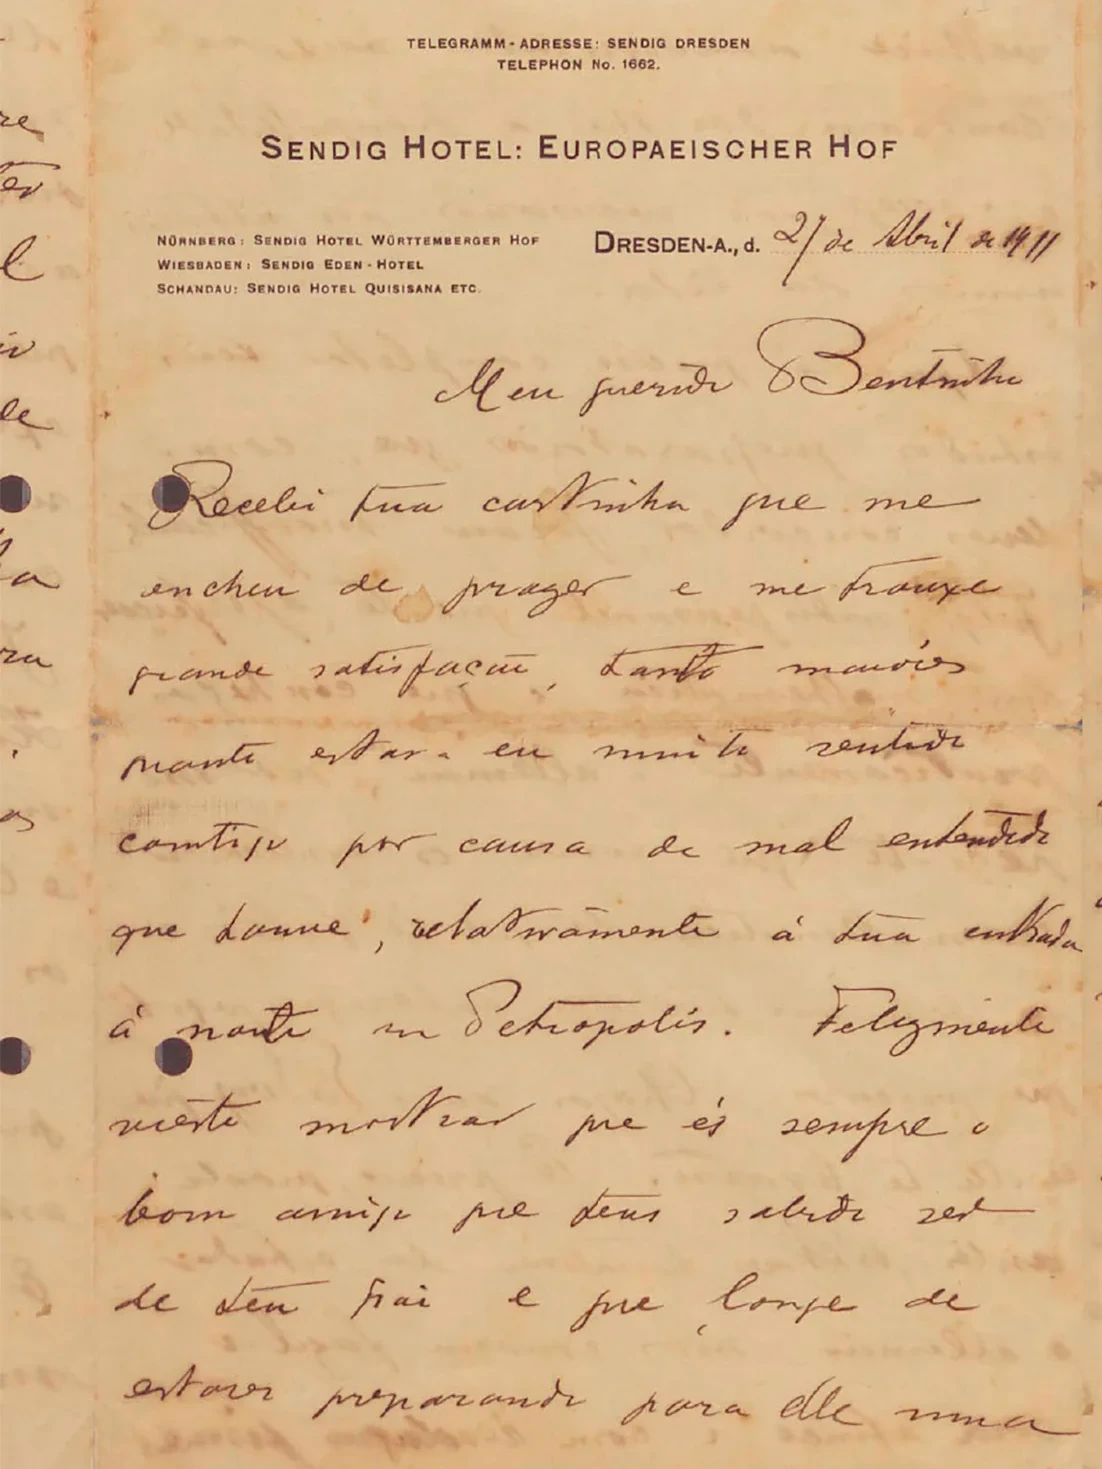 TELEGRAMM-ADRESSE: SENDIG DRESDEN
TELEPHON No. 1662.
SENDIG HOTEL: EUROPAEISCHER HOF
NÜRNBERG: SENDIG HOTEL WÜRTTEMBERGER HOF
WIESBADEN: SENDIG EDEN-HOTEL
SCHANDAU: SENDIG HOTEL QUISISANA ETC.
DRESDEN-A., d. 27 de Abril de 1911
Meu querido Bentinho
Recebi tua cartinha que me
encheu de prazer e me trouxe
grande satisfação, tanto maior
quanto estava eu muito sentido
comtigo por causa de mal entendido
que houve, relativamente á tua entrada
á noute em Petropolis. Felizmente
vieste mostrar que és sempre o
bom amigo que tens sabido ser
de teu pai e que longe de
estares preparando para elle uma